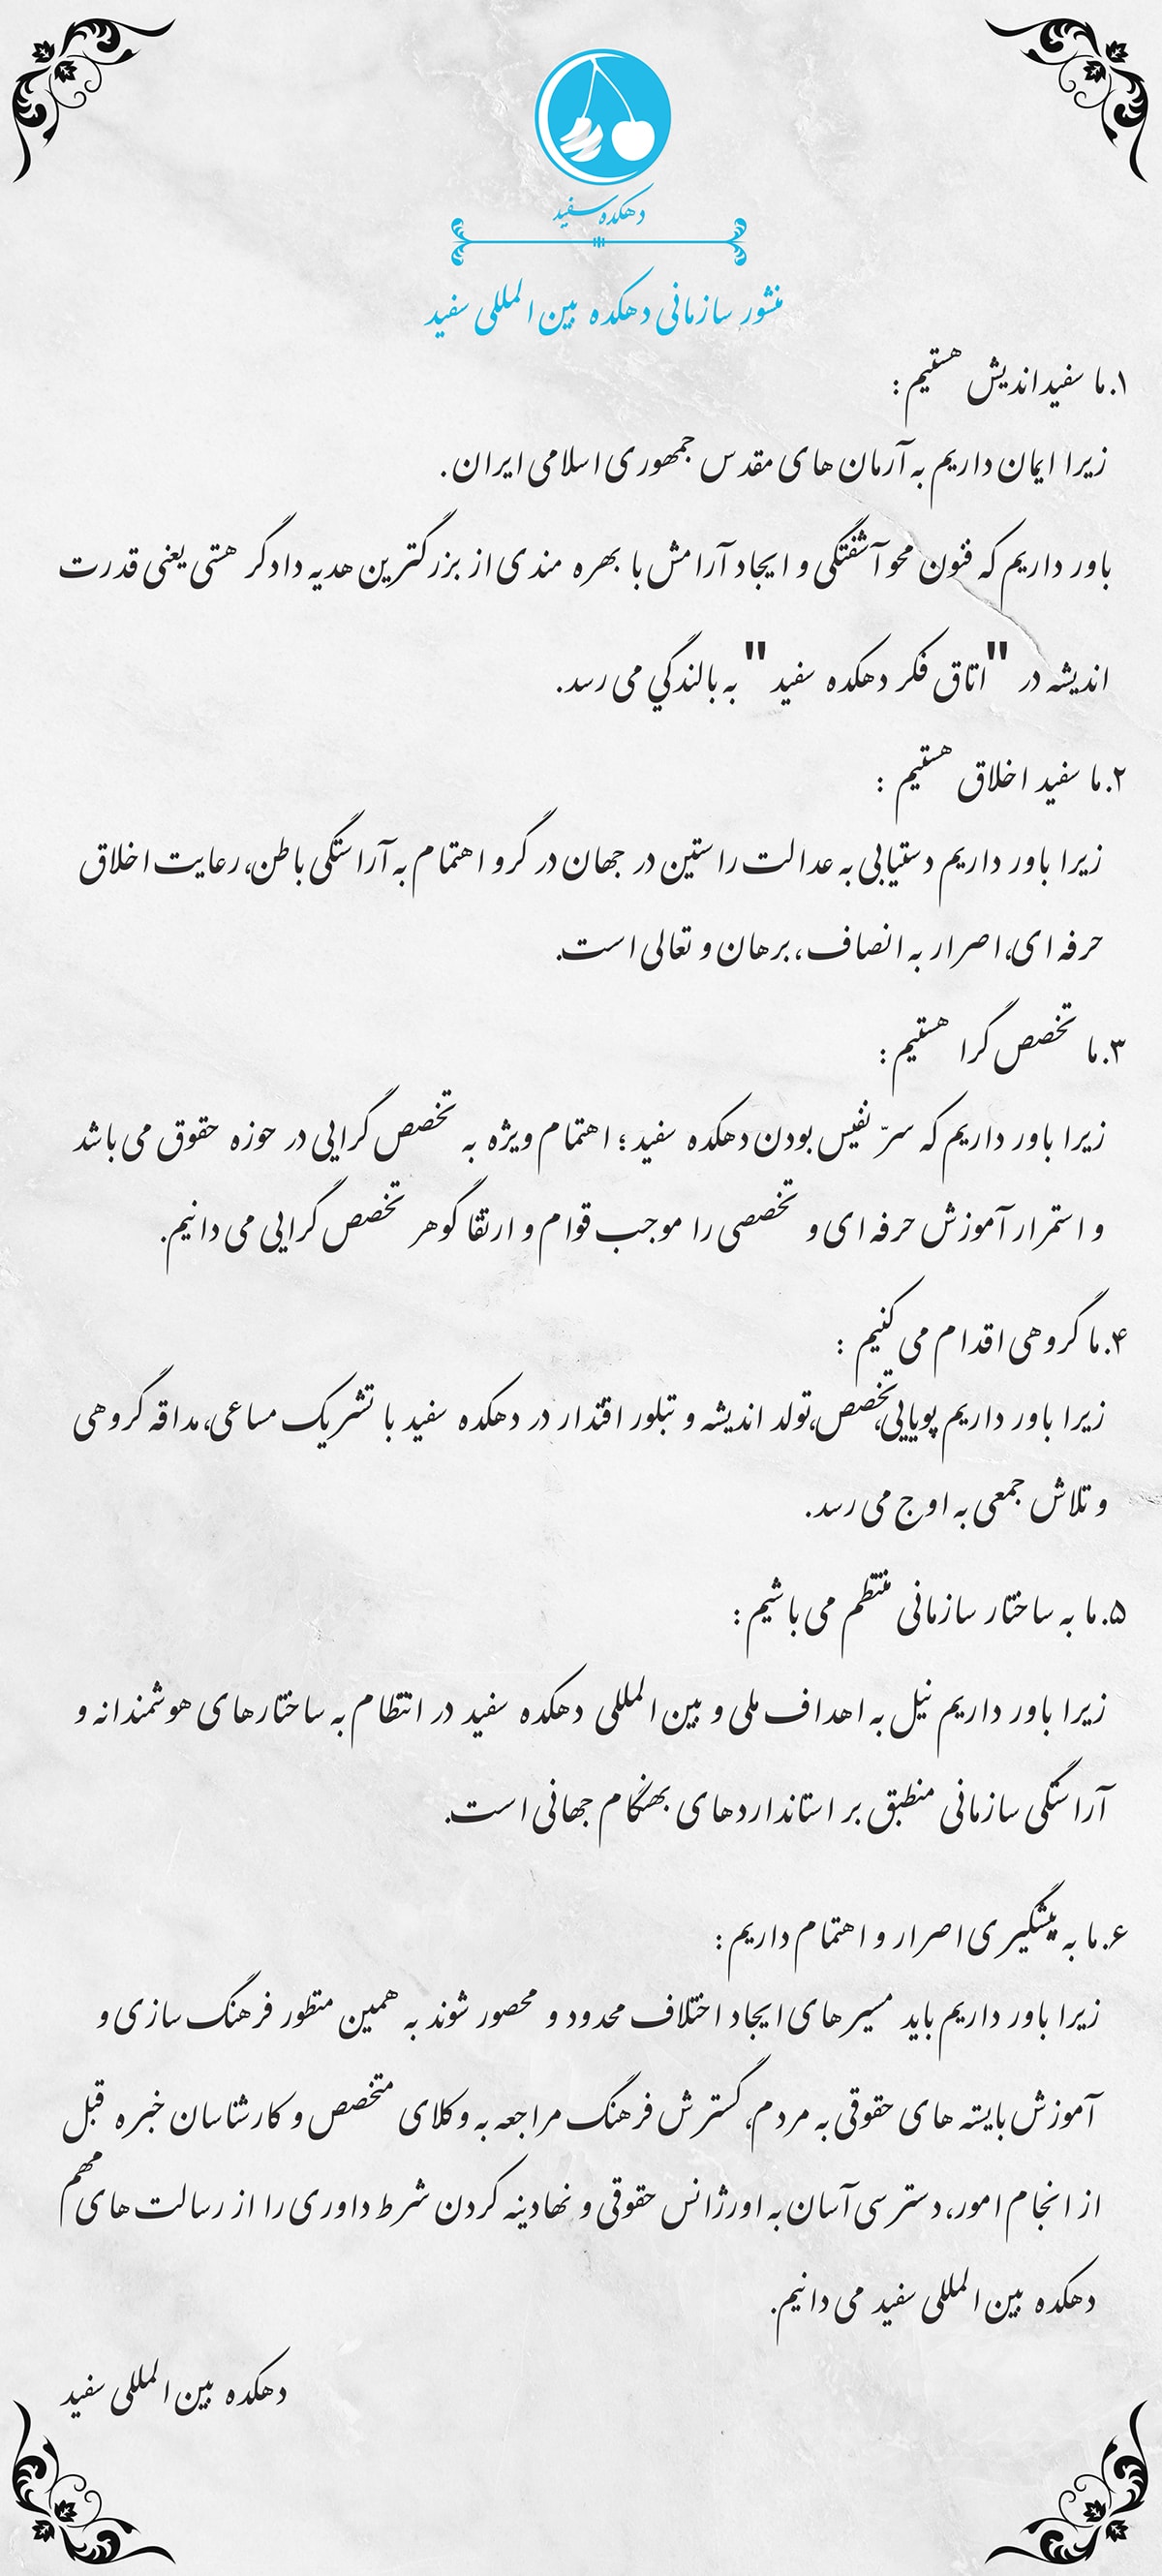 دهکده سفید
منشور سازمانی دهکده بین المللی سفید
۱.ما سفیداندیش هستیم :
زیرا ایمان داریم به آرمان های مقدس جمهوری اسلامی ایران .
باور داریم که فنون محو آشفتگی و ایجاد آرامش با بهره مندی از بزرگترین هدیه دادگر هستی یعنی قدرت
اندیشه در "اتاق فکر دهکده سفید" به بالندگي می رسد.
۲.ما سفید اخلاق هستیم :
زیرا باور داریم دستیابی به عدالت راستین در جهان در گرو اهتمام به آراستگی باطن،رعایت اخلاق
حرفه ای،اصرار به انصاف ،برهان و تعالی است.
۳.ما تخصص گرا هستیم :
زیرا باور داریم که سرّ نفیس بودن دهکده سفید ؛ اهتمام ویژه به تخصص گرایی در حوزه حقوق می باشد
و استمرار آموزش حرفه ای و تخصصی را موجب قوام و ارتقا گوهر تخصص گرایی می دانیم.
۴.ما گروهی اقدام می کنیم :
زیرا باور داریم پویایی،تخصص،تولد اندیشه و تبلور اقتدار در دهکده سفید با تشریک مساعی،مداقه گروهی
و تلاش جمعی به اوج می رسد.
۵.ما به ساختار سازمانی منتظم می باشیم :
زیرا باور داریم نیل به اهداف ملی و بین المللی دهکده سفید در انتظام به ساختارهای هوشمندانه و
آراستگی سازمانی منطبق بر استانداردهای بهنگام جهانی است.
۶.ما به پیشگیری اصرار و اهتمام داریم :
زیرا باور داریم باید مسیرهای ایجاد اختلاف محدود و محصور شوند به همین منظور فرهنگ سازی و
آموزش بایسته های حقوقی به مردم،گسترش فرهنگ مراجعه به وکلای متخصص و کارشناسان خبره قبل
از انجام امور،دسترسی آسان به اورژانس حقوقی و نهادینه کردن شرط داوری را از رسالت های مهم
دهکده بین المللی سفید می دانیم.
دهکده بین المللی سفید